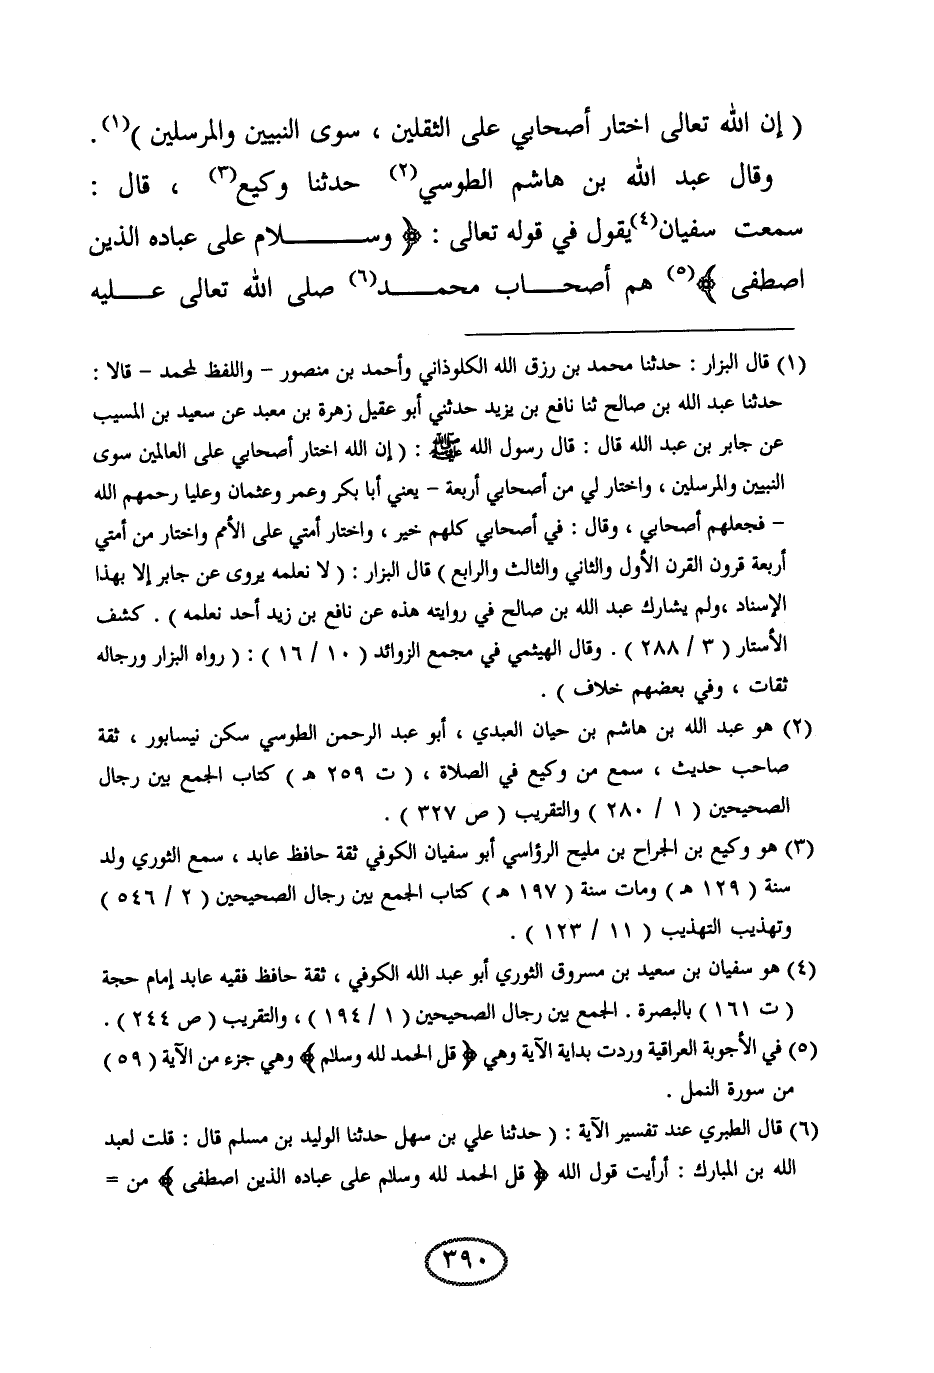 ( إن الله تعالى اختار أصحابي على الثقلين ، سوى النبيين والمرسلين )(١) .
وقال عبد الله بن هاشم الطوسي(٢) حدثنا وكيع(٣) ، قال :
سمعت سفيان(٤)يقول في قوله تعالى : ﴿ وســـــــلام على عباده الذين
اصطفى ﴾(٥) هم أصحـــاب محمـــد(٦) صلى الله تعالى عـــليه
(١) قال البزار : حدثنا محمد بن رزق الله الكلوذاني وأحمد بن منصور – واللفظ لمحمد – قالا :
حدثنا عبد الله بن صالح ثنا نافع بن يزيد حدثني أبو عقيل زهرة بن معبد عن سعيد بن المسيب
عن جابر بن عبد الله قال : قال رسول الله ﷺ : ( إن الله اختار أصحابي على العالمين سوى
النبيين والمرسلين ، واختار لي من أصحابي أربعة – يعني أبا بكر وعمر وعثمان وعليا رحمهم الله
– فجعلهم أصحابي ، وقال : في أصحابي كلهم خير ، واختار أمتي على الأمم واختار من أمتي
أربعة قرون القرن الأول والثاني والثالث والرابع ) قال البزار : ( لا نعلمه يروى عن جابر إلا بهذا
الإسناد ،ولم يشارك عبد الله بن صالح في روايته هذه عن نافع بن زيد أحد نعلمه ) . كشف
الأستار ( ٣ / ٢٨٨ ) . وقال الهيثمي في مجمع الزوائد ( ١٠ / ١٦ ) : ( رواه البزار ورجاله
ثقات ، وفي بعضهم خلاف ) .
(٢) هو عبد الله بن هاشم بن حيان العبدي ، أبو عبد الرحمن الطوسي سكن نيسابور ، ثقة
صاحب حديث ، سمع من وكيع في الصلاة ، ( ت ٢٥٩ هـ ) كتاب الجمع بين رجال
الصحيحين ( ١ / ٢٨٠ ) والتقريب ( ص ٣٢٧ ) .
(٣) هو وكيع بن الجراح بن مليح الرؤاسي أبو سفيان الكوفي ثقة حافظ عابد ، سمع الثوري ولد
سنة ( ١٢٩ هـ ) ومات سنة ( ١٩٧ هـ ) كتاب الجمع بين رجال الصحيحين ( ٢ / ٥٤٦ )
وتهذيب التهذيب ( ١١ / ١٢٣ ) .
(٤) هو سفيان بن سعيد بن مسروق الثوري أبو عبد الله الكوفي ، ثقة حافظ فقيه عابد إمام حجة
( ت ١٦١ ) بالبصرة . الجمع بين رجال الصحيحين ( ١ / ١٩٤ ) ، والتقريب ( ص ٢٤٤ ) .
(٥) في الأجوبة العراقية وردت بداية الآية وهي ﴿ قل الحمد لله وسلام ﴾ وهي جزء من الآية ( ٥٩ )
من سورة النمل .
(٦) قال الطبري عند تفسير الآية : ( حدثنا علي بن سهل حدثنا الوليد بن مسلم قال : قلت لعبد
الله بن المبارك : أرأيت قول الله ﴿ قل الحمد لله وسلام على عباده الذين اصطفى ﴾ من =
٣٩٠